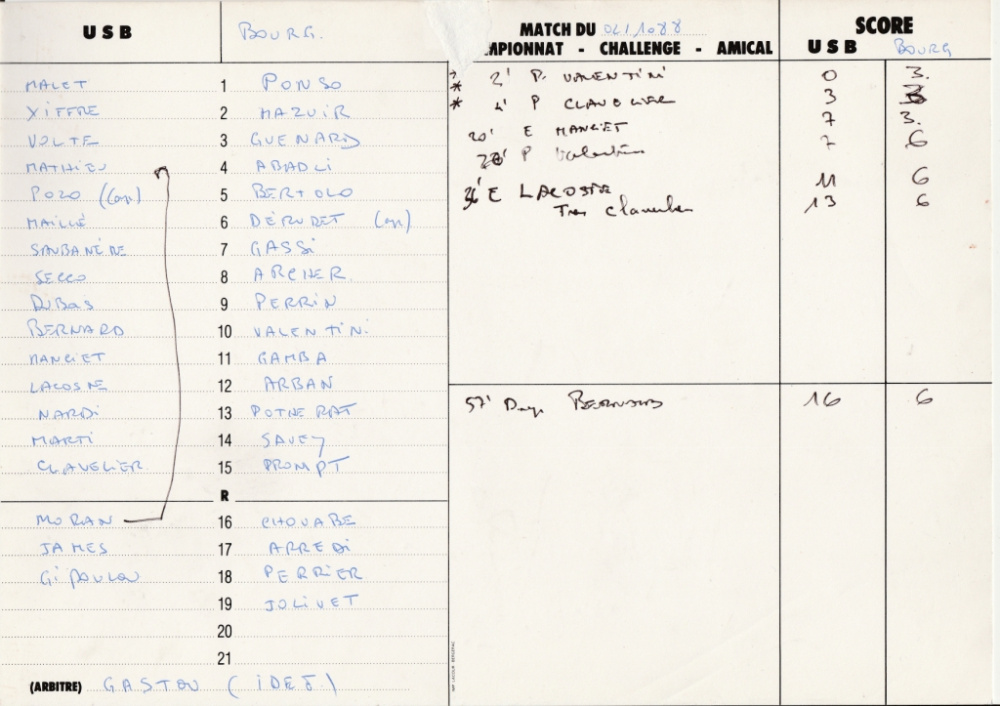 USB BOURG.
MALET 1 PONSO
XIFFRE 2 MAZUIR
VOLTE 3 GUENARD
MATHIEU 4 ABADLI
POZO (Cap.) 5 BERTOLO
MAILLÉ 6 DÉRUDET (cap)
SAUBANÈRE 7 GASSi
SECCO 8 ARCHER
DUBOS 9 PERRIN
BERNARD 10 VALENTiNi
MANCIET 11 GAMBA
LACOSTE 12 ARBAN
NARDi 13 POTHERAT
MARTi 14 SAVEY
CLAVELIER 15 PROMPT
R
MORAN 16 CHOUABE
JAMES 17 ARREDi
GiPOULOU 18 PERRiER
19 JOLiVET
20
21
(ARBITRE) GASTOU (iDEF.)
MATCH DU 02/10 88
MPIONNAT - CHALLENGE - AMICAL
SCORE
USB BOURG
* 2' P. VALENTiNi 0 3.
* 4' P CLAVELIER 3 3
20' E MANCIET 7 3.
28' P Valentini 7 6
36' E LACOSTE 11 6
Trans clavelier 13 6
57' Drop BERNARD 16 6